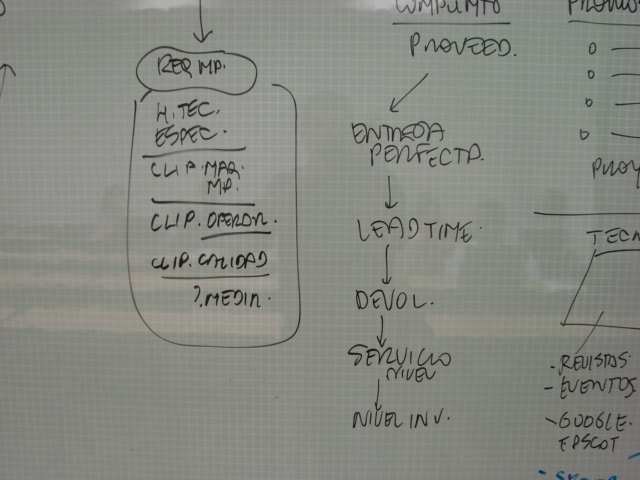 REQ MP.
H. TEC.
ESPEC.
CLIP. MAQ.
MP.
CLIP. OPERDR.
CLIP. CALIDAD
?. MEDIR.
PROVEED.
ENTREGA
PERFECTA.
LEAD TIME.
DEVOL.
SERVICIO
NIVEL
NIVEL INV.
TECN
- REVISTAS.
- EVENTOS.
- GOOGLE.
EPSCOT